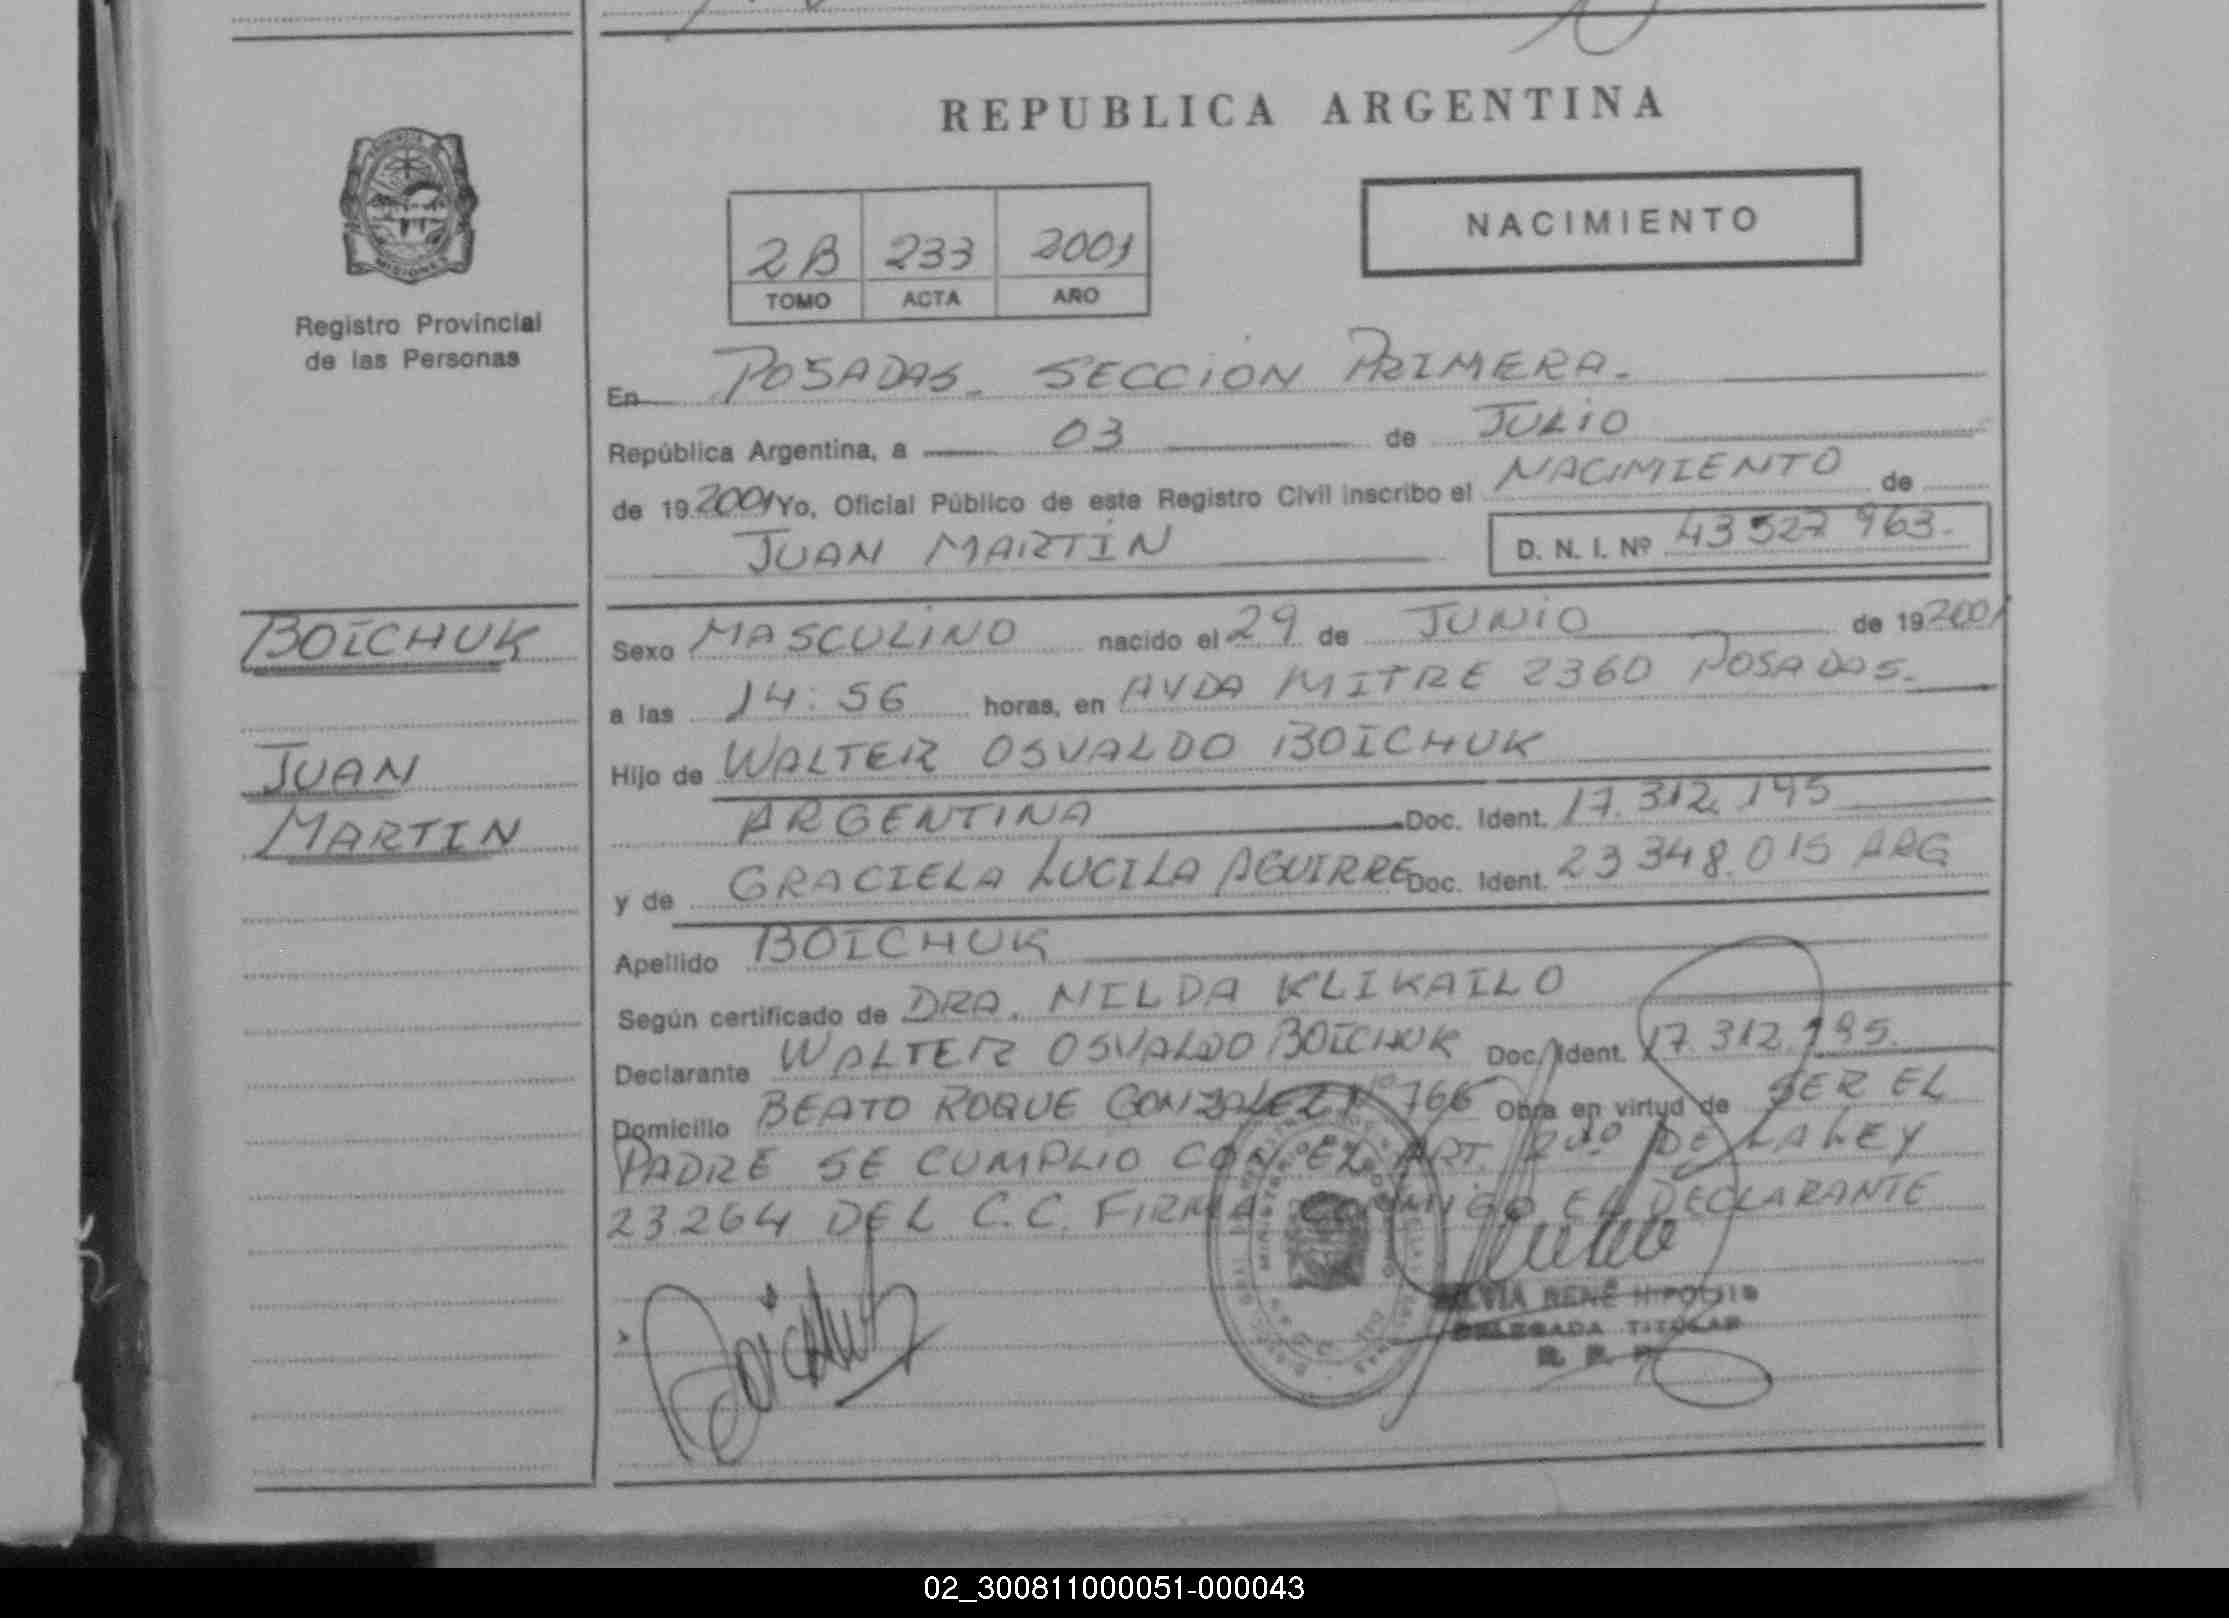 REPUBLICA ARGENTINA
MISIONES
Registro Provincial
de las Personas
NACIMIENTO
2B 233 2001
TOMO ACTA AÑO
En POSADAS. SECCIÓN PRIMERA.
República Argentina, a 03 de JULIO
de 19 2001 Yo, Oficial Público de este Registro Civil inscribo el NACIMIENTO de
JUAN MARTÍN
D. N. I. Nº 43 527 963.
BOICHUK
JUAN
MARTIN
Sexo MASCULINO nacido el 29 de JUNIO de 19 2001
a las 14:56 horas, en AVDA MITRE 2360 POSADAS.
Hijo de WALTER OSVALDO BOICHUK
ARGENTINA Doc. Ident. 17.312.195
y de GRACIELA LUCILA AGUIRRE Doc. Ident. 23 348.015 ARG
Apellido BOICHUK
Según certificado de DRA. NILDA KLIKAILO
Declarante WALTER OSVALDO BOICHUK Doc. Ident. 17.312.195.
Domicilio BEATO ROQUE GONZALEZ Nº 766 Obra en virtud de SER EL
PADRE SE CUMPLIO CON EL ART. 2do DE LA LEY
23.264 DEL C.C. FIRMA CONMIGO EL DECLARANTE
Boichuk
SILVIA RENÉ HIPOLITO
DELEGADA TITULAR
R. P. P.
02_300811000051-000043